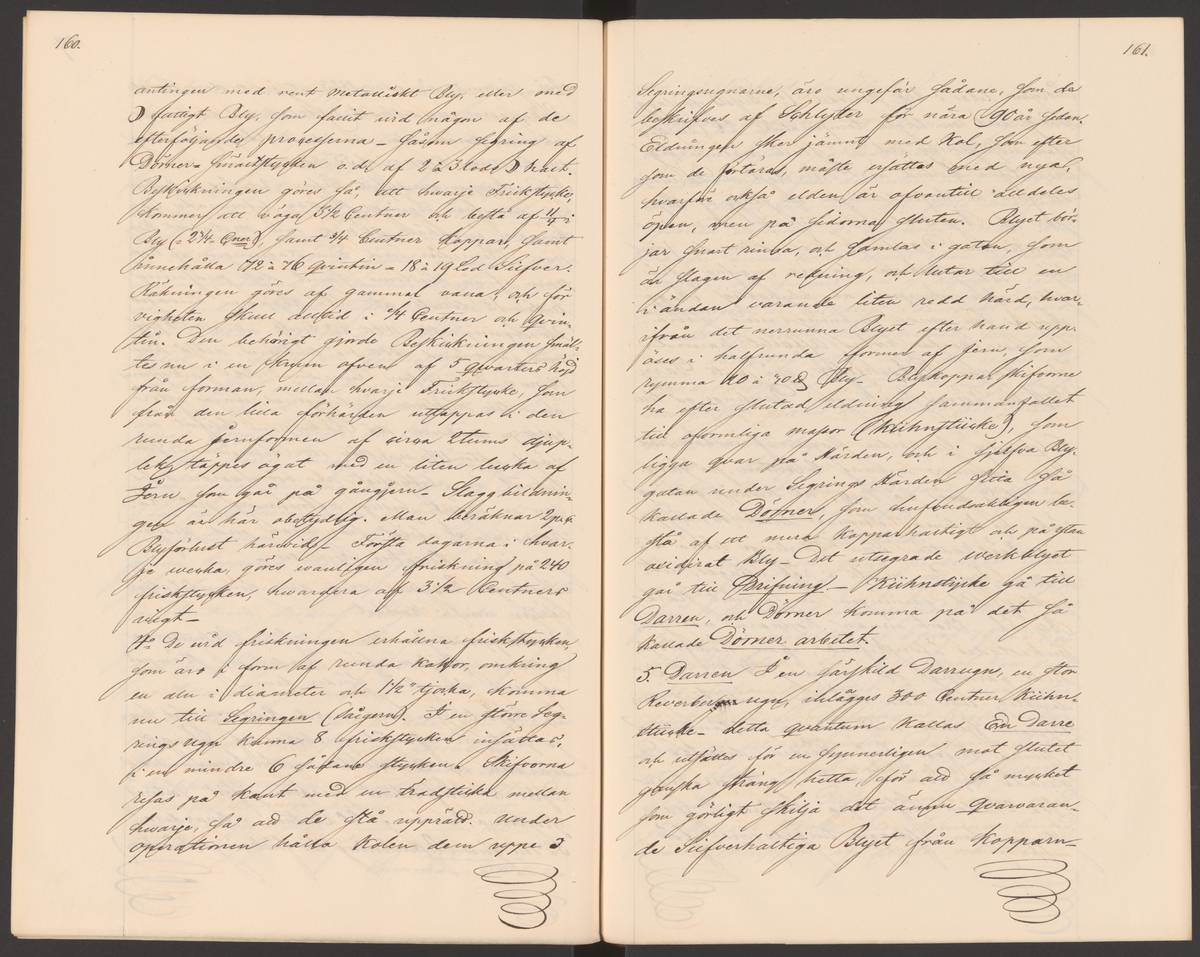 160.
antingen med rent metalliskt Bly, eller med
fattigt Bly, som fallit vid någon af de
efterföljande processerna – såsom segring af
Dörner-smältstycken o.d. af 2 à 3 lods halt.
Beskickningen göres så, att hvarje Frickstycke,
kommer att väga 3 1/2 Centner och bestå af 11/4 i
Bly (= 2 3/4 Cner), samt 3/4 Centner Koppar, samt
innehålla 72 à 76 Qvintin = 18 à 19 Lod Silfver.
Räkningen göres af gammal vana, och för
vigheten skull alltid i 1/4 Centner och Qvin-
tin. Den behörigt gjorde Beskickningen smäl-
tes nu i en krum ofven af 5 qvarters höjd
från forman, mellan hvarje Frickstycke, som
från den lilla förhärden uttappas i den
runda jernformen af circa 2 tums djup-
lek, täppes ögat med en liten lucka af
Jern som går på gångjern – Slaggbildnin-
gen är här obetydlig. Man beräknar 2 pr c.
Blyförlust härvid – Första dagarna i hvar-
je vecka, göres vanligen friskning på 240
friskstycken, hvardera af 3 1/2 Centners
vigt –
4o De vid friskningen erhållna friskstycken,
som äro i form af runda kakor, omkring
en aln i diameter och 1 1/2" tjocka, komma
nu till Segringen (Saigern). I en större Seg-
rings ugn kunna 8 friskstycken insättas,
i en mindre 6 sådane stycken. Skifvorna
resas på kant med en trädsticka mellan
hvarje, så att de stå upprätt. Under
operationen hålla Kolen dem uppe
161.
Segringsugnarne, äro ungefär sådane, som de
beskrifves af Schlyter för nära 90 år sedan.
Eldningen sker jämnt med Kol, som efter
som de förtäras, måste ersättas med nya,
hvarföre också elden är ofvantill alldeles
öpen, men på sidorna sluten. Blyet bör-
jar snart rinna, och samlas i gatan, som
är slagen af, och lutar till en
i ändan varande liten redd härd, hvar-
ifrån det nerrunna Blyet efter hand upp-
öses i halfrunda former af jern, som
rymma Bly – Blykoppar skifvorne
ha efter slutad eldning sammanfallet
till oformliga massor (Kühnstücke), som
ligga qvar på Härden, och i sjelfva Bly-
gatan under Segrings Härden sitta så
kallade Dörner, som hufvudsakligen be-
stå af ett mera kopparhaltigt och på ytan
oxiderat Bly – Det utsegrade werkblyet
går till Drifning – Kühnstycke gå till
Darren, och Dörner komma på det så
kallade Dörner arbetet.
5. Darren I en särskild Darrugn, en stor
Reverber ugn, inlägges 300 Centner Kühn-
stücke – detta qvantum kallas En Darre
och utsättes för en synnerligen mot slutet
ganska sträng hetta, för att så mycket
som görligt skilja det ännu qvarvaran-
de Silfverhaltiga Blyet från Kopparn –